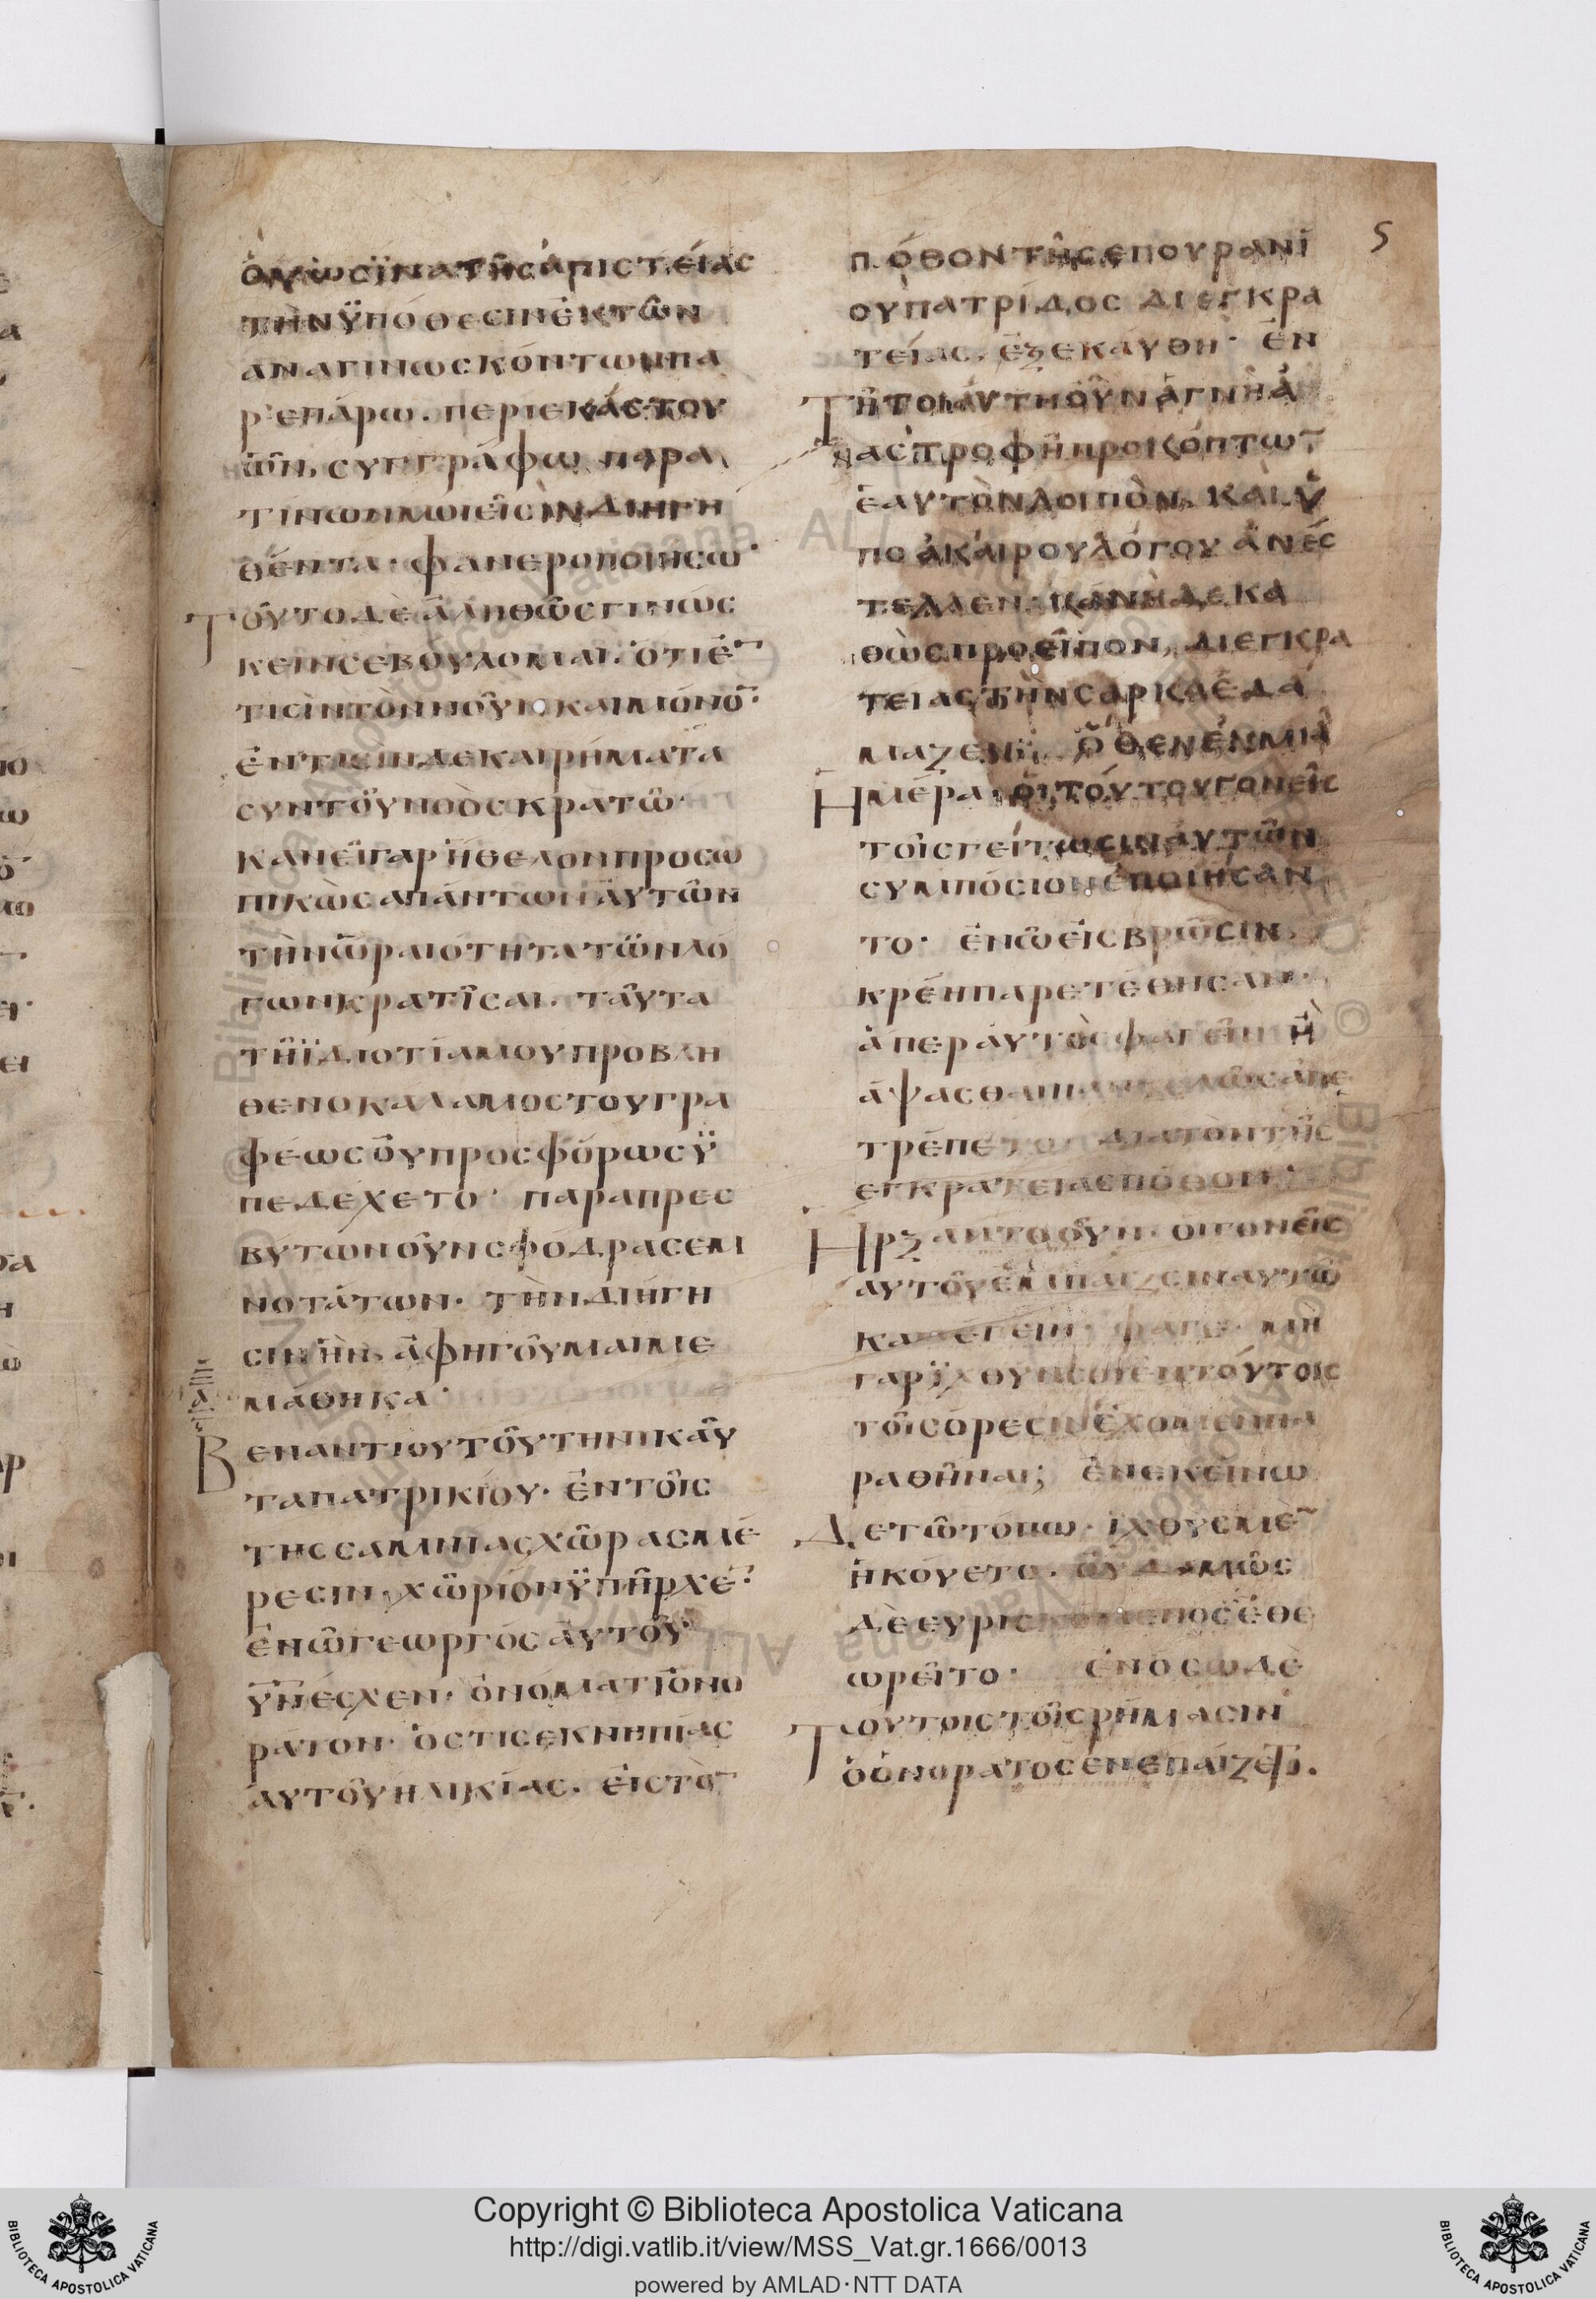 5
ὀλλὼσϊνατῆσἀπιστείασ
τὴνϋπόθεσινἐκτῶν
ἀναγινωσκόντωνπα
ρ'επάρω. περιεκάστου
ὧν, συγγράφω παρα
τίνωνμοιεἰσὶνδιηγη
θέντα· φανεροποιησω·
Τοῦτοδὲἀληθῶσγινώσ
κεινσεβουλομαι. ὁτιἔ̄
τισὶντὸννοῦν, καιμόνο̄·
ἔντισινδεκαιρήματα
συντοῦνοὸσκρατῶ·
κανεῖγὰρἤθελονπροσω
πικὼσἁπάντωναὐτῶν
τὴνὡραιότητατῶνλό
γωνκρατῖσαι. ταῦτα
τῆϊδιοτίαμουπροβλη
θενοκάλαμοστουγρα
φέωσοὐπροσφόρωσϋ
πεδέχετο· παραπρεσ
βύτωνοῦνσφόδρασεμ
νοτάτων· τὴνδιήγη
σινἣν, ἀφηγοῦμαιμε
μάθηκα·
Βεναντίουτοῦτηνικαῦ
ταπατρικίου· ἐντοῖσ
τησσαμνίασχῶρασμέ
ρεσιν, χῶρίονϋπῆρχε̄·
ἐνῶγεωργόσἀυτοῦ
ϋἱ̄ὸ̄νέσχεν· ὀνόματιὁνο
ράτον· ὁστισεκνηπίασ
αὐτοῦηλικίασ. εἰστὸ̄
πόθοντῆσεπουρανί
ουπατρίδοσ διεγκρα
τείασ, ἐξεκαύθη· ἐν
Τῆτοιαύτηοὖνἁγνῆἀ
ναστροφῆπροκόπτω̄
ἑαυτὸνλοιπὸν, καὶὑ
πο ἀκαίρουλόγου ἀνέσ
τελλεν, κανὴδεκα
θὼσπροεῖπον, διεγκρα
τείαστὴνσάρκαἐδά
μαζεν· ὅθενἐνμιᾶ
Ημέρα· ὁιτούτουγονεῖσ
τοῖσγείτωσιναὐτῶν
συμπόσιονἐποιήσαν
το· ἐνῶεἰσβρῶσιν,
κρέηπαρετέθησαν·
ἁπεραὐτὸσφαγεῖν ἢ
ἁψασθαιπαντελῶσἀπε
τρέπετο διατὸντῆσ
εγκρατείασπόθον·
Ηρξαντοοὖν· οιγονεῖσ
ἀυτοῦἐμπαίζειναυτῶ
καλέγειν· φάγε· μὴ
γαρϊχθυνσοιεντούτοισ
τοῖσόρεσινἔχομενπα
ραθῆναι; ἐνεκείνω
Δετῶτόπω· ϊχθυσμὲ̄
ἠκούετο. οὐδαμῶσ
δὲευρισκόμενοσἐθε
ωρεῖτο· ἐνόσωδὲ
Τουτοιστοῖσρήμασιν
ὁὁνορατοσἐνεπαίζετο.
Copyright © Biblioteca Apostolica Vaticana
http://digi.vatlib.it/view/MSS_Vat.gr.1666/0013
powered by AMLAD·NTT DATA
BIBLIOTECA APOSTOLICA VATICANA
BIBLIOTECA APOSTOLICA VATICANA